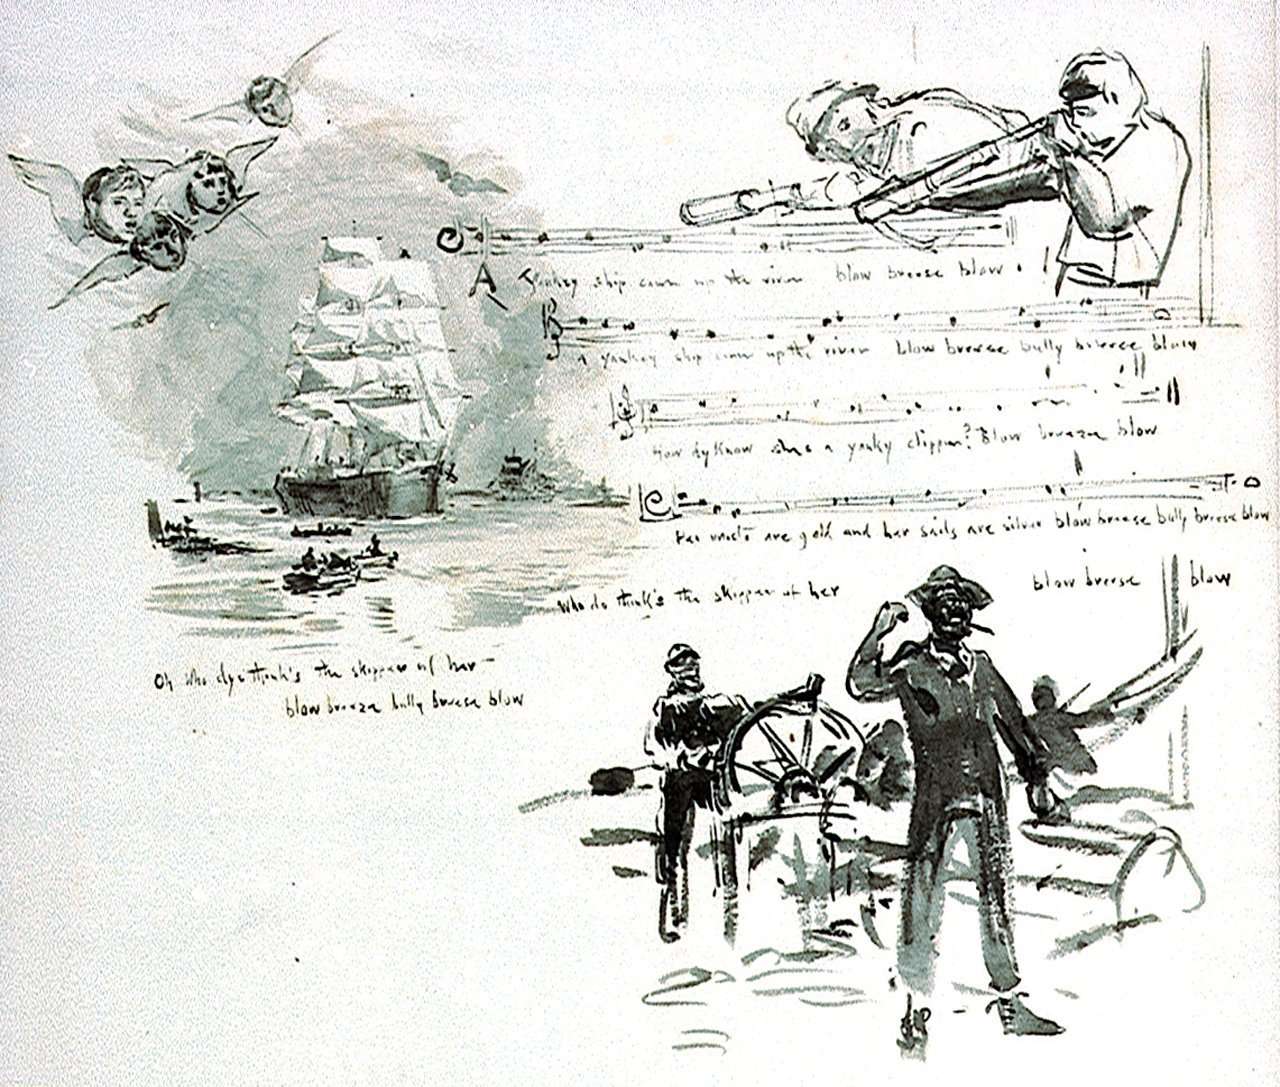 A Yankey ship came up the river blow breese blow.
A yankey ship came up the river blow breese bully breese blow
How dy Know shes a yanky clipper? Blow breeze blow
Her masts are gold and her sails are silver blow breese bully breese blow
Who do think's the skipper of her blow breese blow
Oh who dye think's the skipper of her
blow breeze bully breese blow